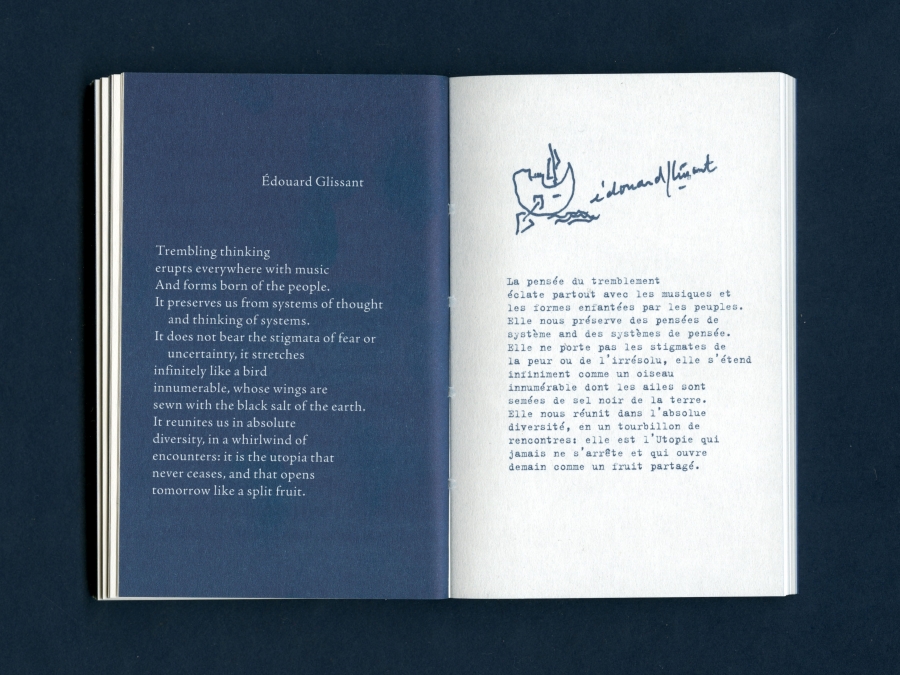 Édouard Glissant
Trembling thinking
erupts everywhere with music
And forms born of the people.
It preserves us from systems of thought
and thinking of systems.
It does not bear the stigmata of fear or
uncertainty, it stretches
infinitely like a bird
innumerable, whose wings are
sewn with the black salt of the earth.
It reunites us in absolute
diversity, in a whirlwind of
encounters: it is the utopia that
never ceases, and that opens
tomorrow like a split fruit.
édouard glissant
La pensée du tremblement
éclate partout avec les musiques et
les formes enfantées par les peuples.
Elle nous préserve des pensées de
système and des systèmes de pensée.
Elle ne porte pas les stigmates de
la peur ou de l'irrésolu, elle s'étend
infiniment comme un oiseau
innumérable dont les ailes sont
semées de sel noir de la terre.
Elle nous réunit dans l'absolue
diversité, en un tourbillon de
rencontres: elle est l'Utopie qui
jamais ne s'arrête et qui ouvre
demain comme un fruit partagé.